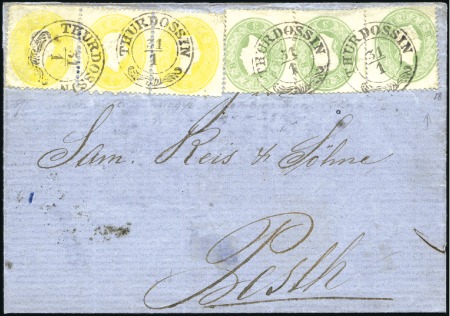 THURDOSSIN
31
1
THURDOSSIN
31
1
THURDOSSIN
31
1
THURDOSSIN
31
1
Sam. Reis & Söhne
Pesth